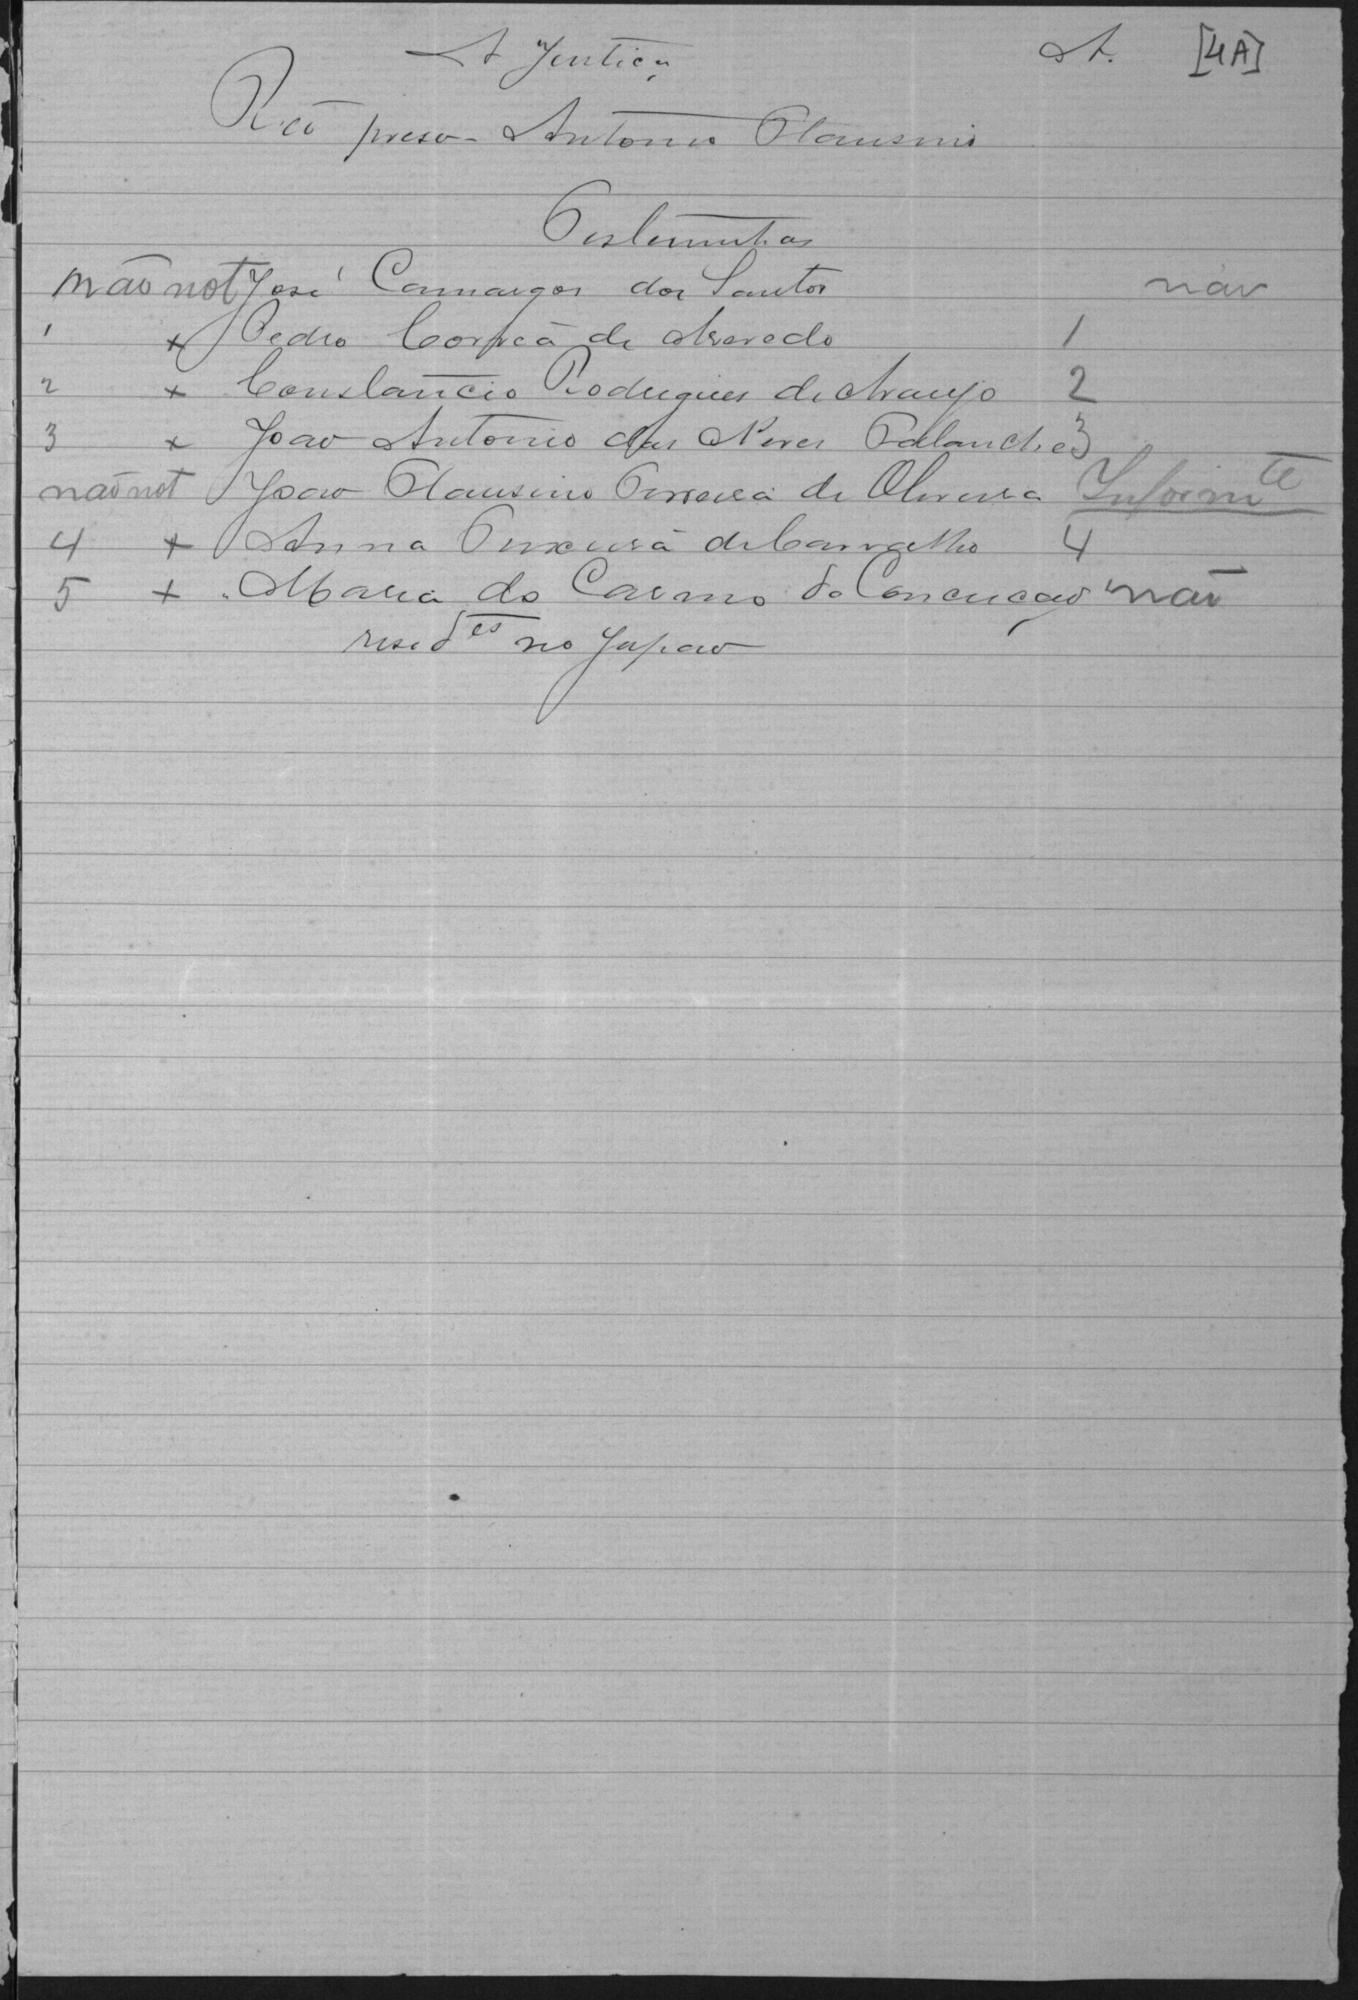 A Justiça A. [4A]
Reo preso - Antonio Clausino
Testemunhas
não not José Camargos dos Santos não
1 x Pedro Corrêa de Azevedo 1
2 x Constancio Rodrigues de Araujo 2
3 x João Antonio das Neves 3
não not João Clausino Ferreira de Oliveira Inform.te
4 x Anna Teixeira de Carvalho 4
5 x Maria do Carmo da Conceição não
resid.es no Japão